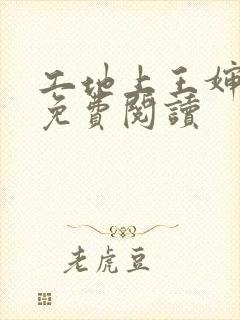 工地上王婶
免費閱讀
老虎豆